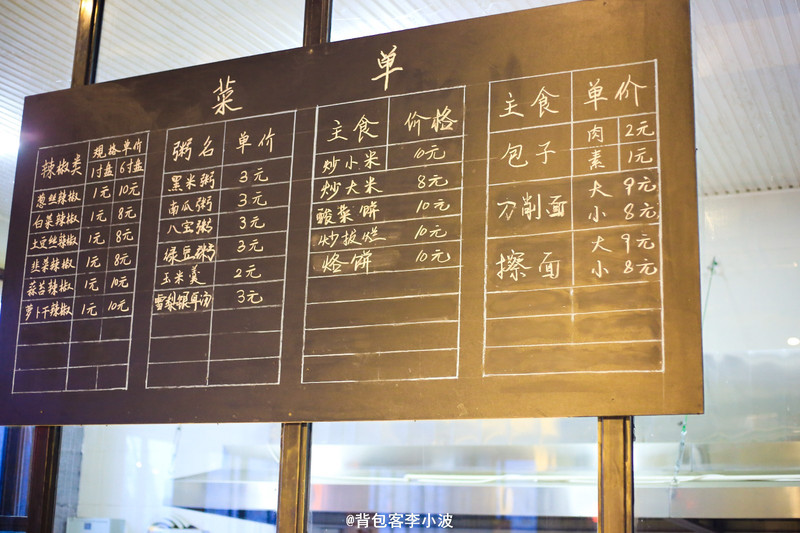 菜 单
辣椒类 规格单价
1寸盘 6寸盘
葱丝辣椒 1元 10元
白菜辣椒 1元 8元
土豆丝辣椒 1元 8元
韭菜辣椒 1元 8元
蒜苔辣椒 1元 10元
萝卜干辣椒 1元 10元
粥名 单价
黑米粥 3元
南瓜粥 3元
八宝粥 3元
绿豆粥 3元
玉米羹 2元
雪梨银耳汤 3元
主食 价格
炒小米 10元
炒大米 8元
酸菜饼 10元
炒拔烂 10元
烙饼 10元
主食 单价
包子 肉 2元
素 1元
刀削面 大 9元
小 8元
擦面 大 9元
小 8元
@背包客李小波